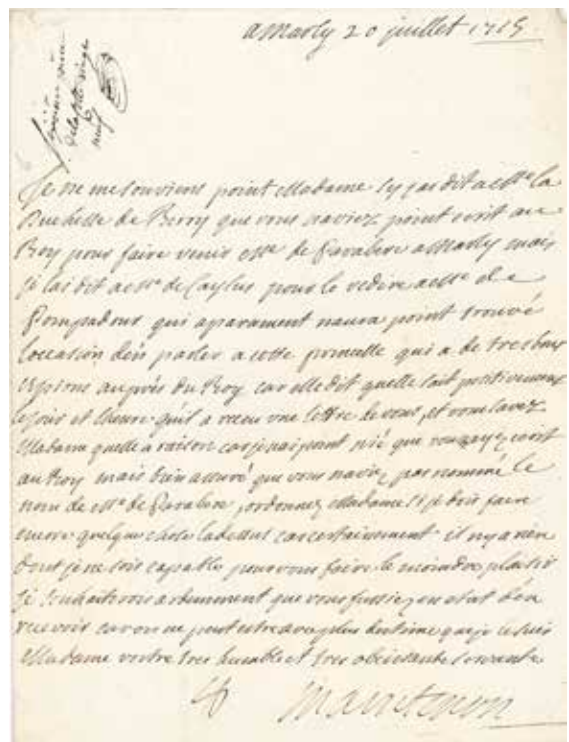 a Marly 20 juillet 1715.
Je ne me souviens point Madame sy jay dit a Me la
Duchesse de Berry que vous naviez point ecrit au
Roy pour faire venir Me de Parabere a Marly mais
je lai dit a Me de Caylus pour le redire a Me de
Pompadour qui aparament naura point trouvé
loccasion den parler a cette princesse qui a de tres bons
espions auprès du Roy car elle dit quelle sait positivement
le jour et lheure quil a receu une lettre de vous, et vous savez
Madame quelle a raison car je nai point nié que vous ayez ecrit
au Roy mais bien assuré que vous naviez pas nommé le
nom de Me de Parabere, ordonnez Madame si je dois faire
encore quelque chose la dessus car certainement il ny a rien
dont je ne sois capable pour vous faire le moindre plaisir
je souhaiterois ardemment que vous fussiez en etat den
recevoir car on ne peut estre avec plus destime que je le suis
Madame vostre tres humble et tres obeissante servante
Maintenon